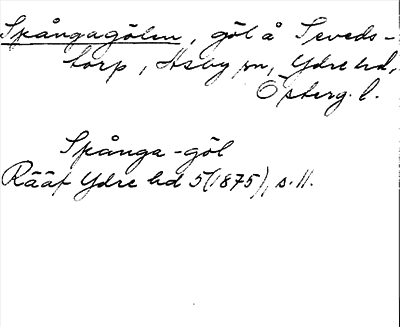 Spångagölen, göl å Seveds-
torp, Asby sn, Ydre hd,
Österg. l.
Spånga-göl
Rääf Ydre hd 5 (1875), s. 11.